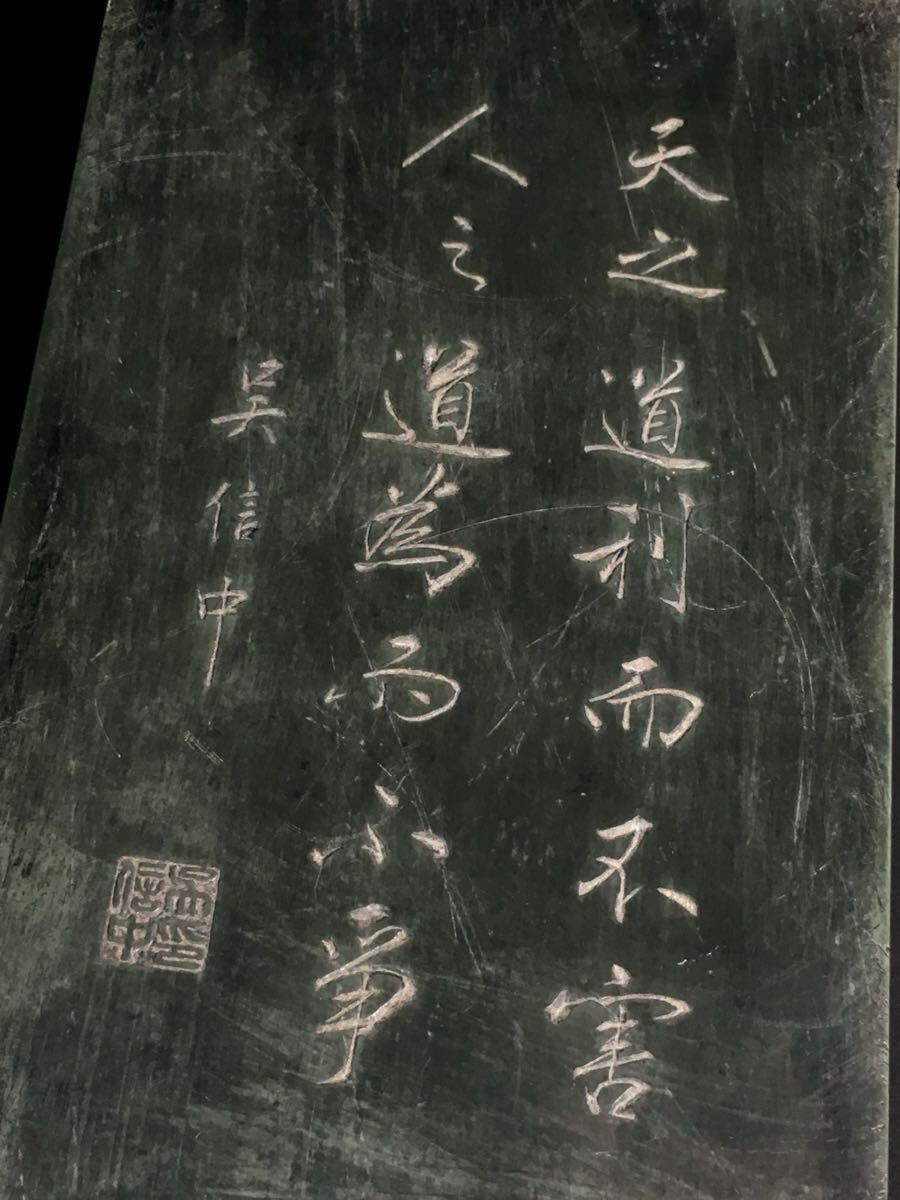 天之道利而不害
人之道為而不爭
吳信中
吳信中印